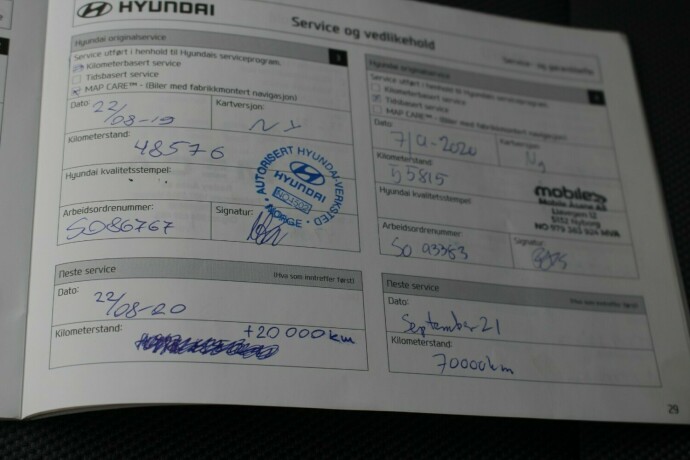 HYUNDAI
Service og vedlikehold
Hyundai originalservice
Service utført i henhold til Hyundais serviceprogram.
Kilometerbasert service
Tidsbasert service
MAP CARE™ - (Biler med fabrikkmontert navigasjon)
Dato: 22/08-19
Kartversjon: NY
Kilometerstand: 48576
Hyundai kvalitetsstempel:
AUTORISERT HYUNDAI-VERKSTED
HYUNDAI
NORGE
Arbeidsordrenummer: SO86767
Signatur:
Neste service
(Hva som inntreffer først)
Dato: 22/08-20
Kilometerstand: +20 000 km
Service- og garantihefte
Hyundai originalservice
Service utført i henhold til Hyundais serviceprogram.
Kilometerbasert service
Tidsbasert service
MAP CARE™ - (Biler med fabrikkmontert navigasjon)
Dato: 7/9-2020
Kartversjon: Ny
Kilometerstand: 55815
Hyundai kvalitetsstempel:
mobile
Mobile Åsane AS
Liavegen 12
5132 Nyborg
Arbeidsordrenummer: SO 93383
Signatur:
Neste service
(Hva som inntreffer først)
Dato: September 21
Kilometerstand: 70000km
29